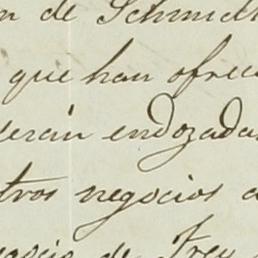 n de Schmidt
que han ofrec
serán endozadas
tros negocios a
negocio de Frey